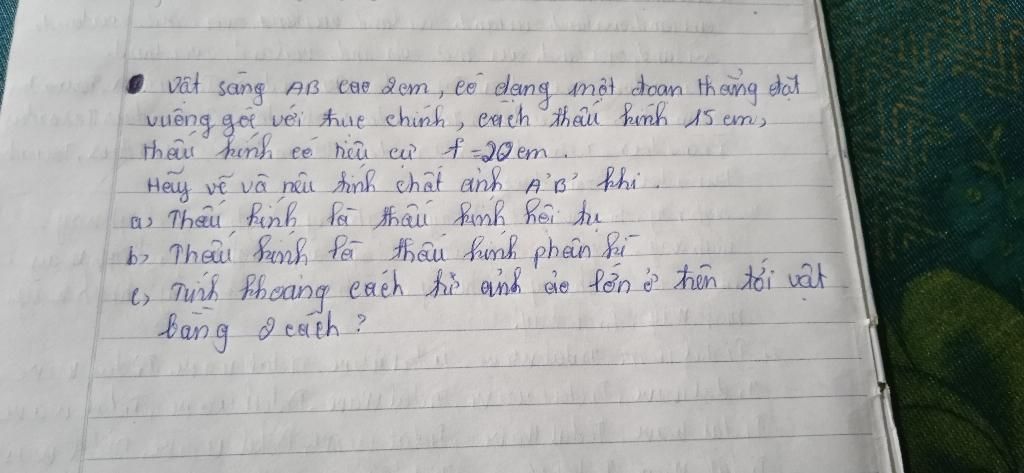 Vật sáng AB cao 2cm, có dạng một đoạn thẳng đặt
vuông góc với trục chính, cách thấu kính 15 cm,
thấu kính có tiêu cự f = 20 cm.
Hãy vẽ và nêu tính chất ảnh A'B' khi.
a) Thấu kính là thấu kính hội tụ
b) Thấu kính là thấu kính phân kì
c) Tính khoảng cách từ ảnh ảo lớn ở trên tới vật
bằng 2 cách?